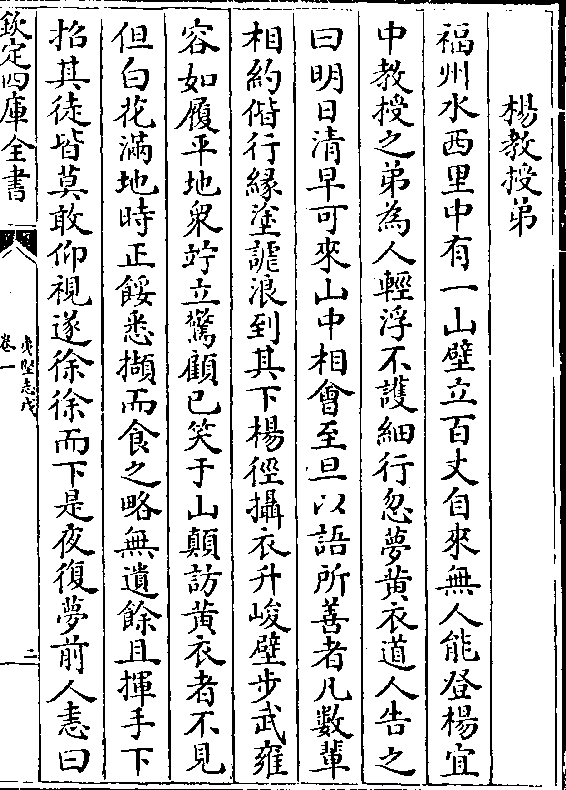 楊教授弟
福州水西里中有一山壁立百丈自來無人能登楊宜
中教授之弟為人輕浮不護細行忽夢黄衣道人告之
曰明日清早可來山中相會至旦以語所善者凡數輩
相約偕行縁塗謔浪到其下楊徑攝衣升峻壁步武雍
容如履平地衆竚立驚顧已笑于山顛訪黄衣者不見
但白花滿地時正餒悉擷而食之略無遺餘且揮手下
招其徒皆莫敢仰視遂徐徐而下是夜復夢前人恚曰
欽定四庫全書
夷堅志戊
卷一
二